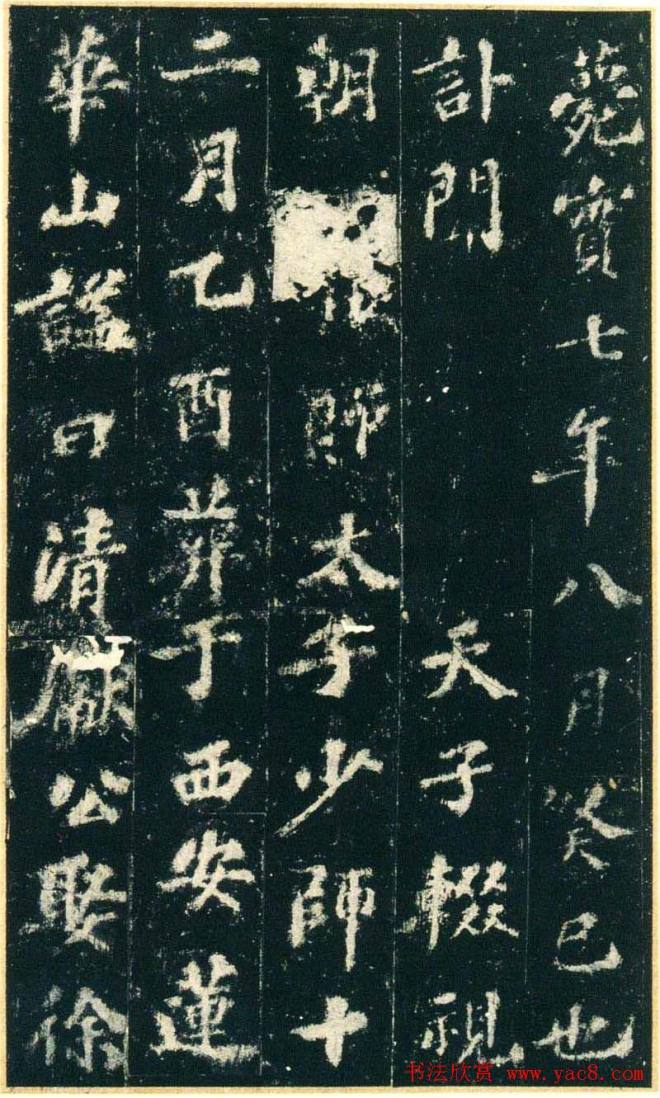 薨實七年八月癸巳也
訃聞 天子輟視
朝 太子少師十
二月乙酉葬于西安蓮
華山諡曰清獻公娶徐
书法欣赏 www.yac8.com